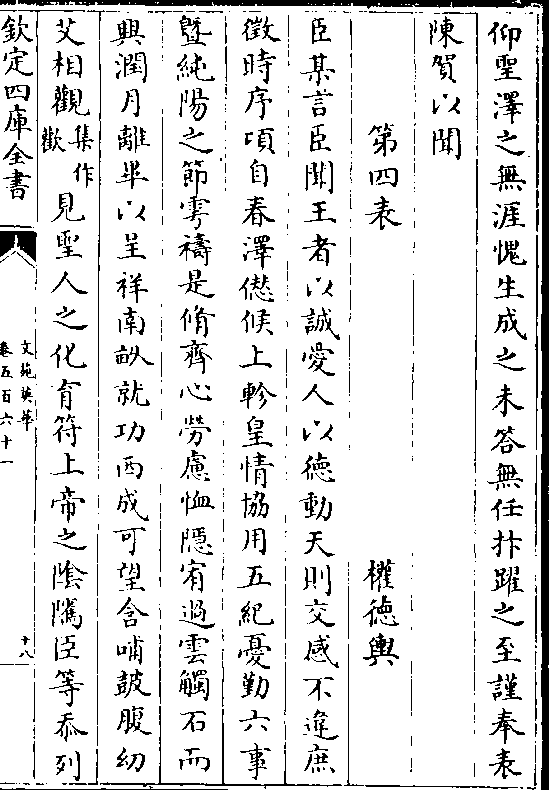 仰聖澤之無涯愧生成之未答無任抃躍之至謹奉表
陳賀以聞
第四表 權德輿
臣某言臣聞王者以誠愛人以德動天則交感不違庶
徵時序項自春澤愆候上軫皇情協用五紀憂勤六事
曁純陽之節雩禱是脩齊心勞慮恤隱宥過雲觸石而
興潤月離畢以呈祥南畝就功西成可望含哺鼓腹幼
艾相觀集作歡見聖人之化育符上帝之陰騭臣等忝列
欽定四庫全書
文苑英華
卷五百六十一
十八